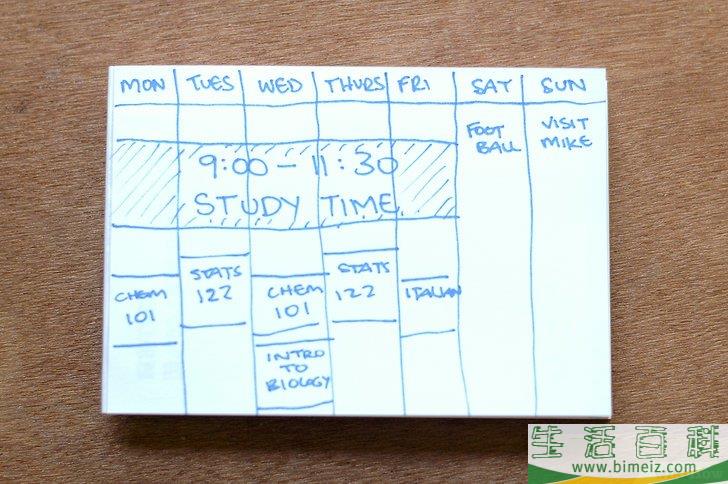 MON TUES WED THURS FRI SAT SUN
FOOT BALL
VISIT MIKE
9:00 - 11:30
STUDY TIME
CHEM 101
STATS 122
CHEM 101
STATS 122
ITALIAN
INTRO TO BIOLOGY
生活百科
www.bimeiz.com